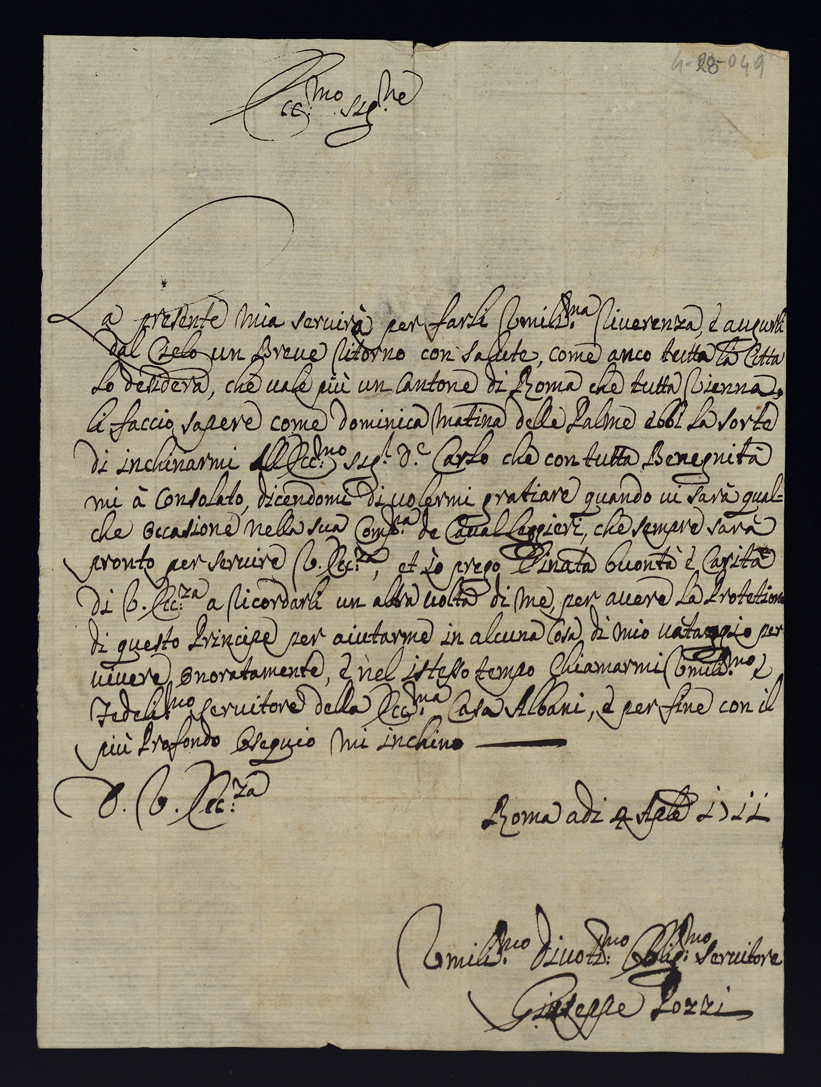 4-28-049
Ecc:mo Sig:re
La presente mia servirà per farli Umili:ma Riverenza, è augurli
dal Cielo un Breve Ritorno con salute, come anco tutta la Citta
lo desidera, che vale più un Cantone di Roma che tutta Vienna,
li faccio sapere come dominica matina delle Palme ebbi la sorte
di inchinarmi all Ecc:mo Sig:r D: Carlo che con tutta Benegnità
mi à Consolato, dicendomi di volermi gratiare quando vi sarà qual=
che occasione nella sua Comp:a de Cavalleggieri, che sempre sarà
pronto per servire V. Ecc:za, et io prego l'inata buontà è Carità
di V. Ecc:za a ricordarli un altra volta di me, per avere la Protetione
di questo Principe per aiutarme in alcuna Cosa, di mio vataggio per
vivere onoratamente, è nel istesso tempo Chiamarmi Umili:mo è
Fedeli:mo servitore della Ecc:ma Casa Albani, è per fine con il
più Profondo Osequio mi inchino
D. V. Ecc:za
Roma adi 4 Aple 1711
Umili:mo Divoti:mo Oblig:mo servitore
Giuseppe Pozzi